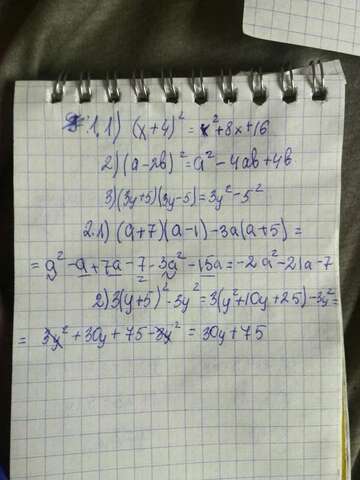 1.1) (x+4)² = x²+8x+16
2) (a-2b)² = a² - 4ab + 4b
3) (3y+5)(3y-5) = 3y² - 5²
2.1) (a+7)(a-1) - 3a(a+5) =
= a² - a + 7a - 7 - 3a² - 15a = -2a² - 21a - 7
2) 3(y+5)² - 3y² = 3(y² + 10y + 25) - 3y² =
= 3y² + 30y + 75 - 3y² = 30y + 75